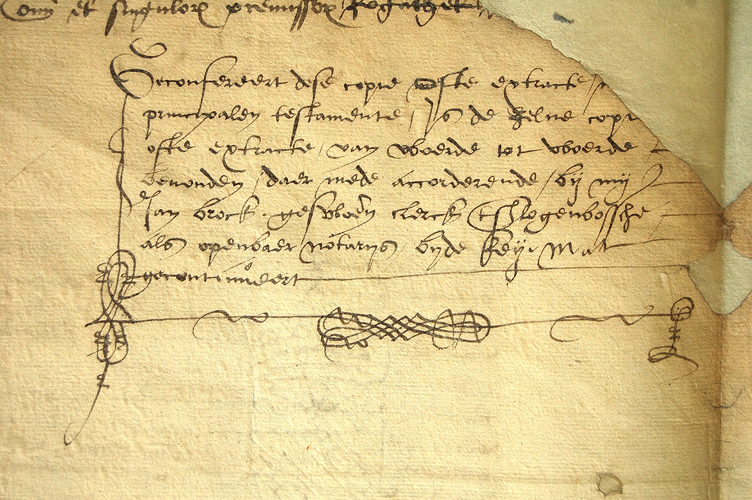 et singulorum premissorum rogatus
Geconfereert dese copie ofte extracte
principalen testamente, Is de zelue copi
ofte extracte, van woerde tot woerde
beuonden, daer mede accorderende, bij mij
Jan brock, geswoeren clerck tShertogenbossche,
als openbaer notarijs bijde keyr Mat
gecontinueert